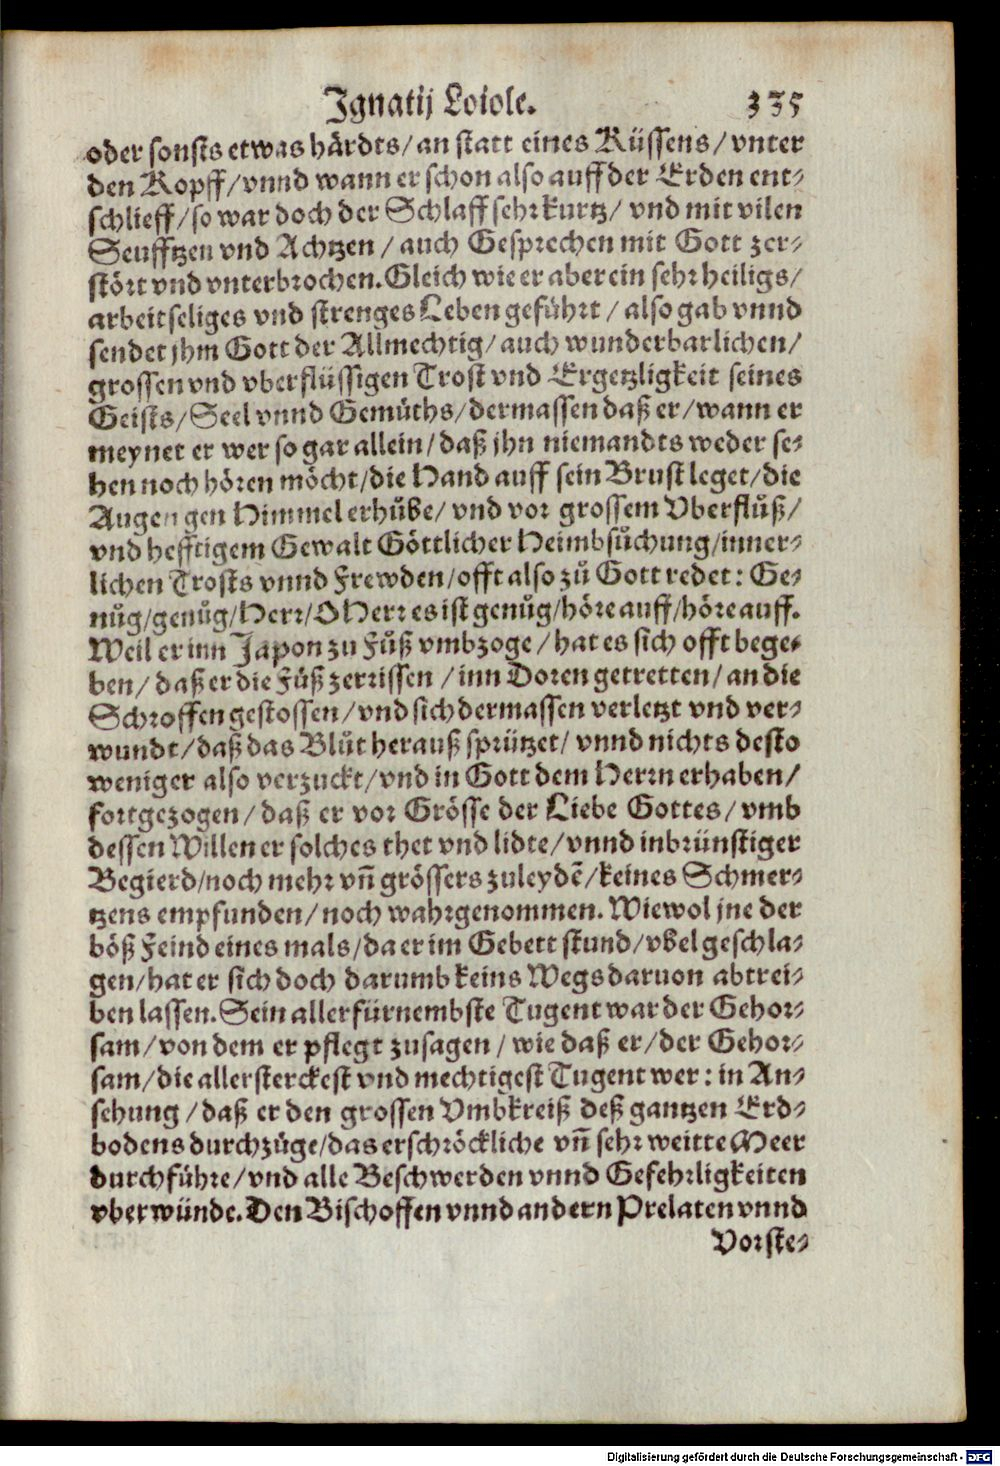 Ignatij Loiole. 335
oder sonsts etwas härdts/ an statt eines Küssens/ vnter
den Kopff/ vnnd wann er schon also auff der Erden ent-
schlieff/ so war doch der Schlaff sehr kurtz/ vnd mit vilen
Seufftzen vnd Achtzen/ auch Gesprechen mit Gott zer-
stört vnd vnterbrochen. Gleich wie er aber ein sehr heiligs/
arbeitseliges vnd strenges Leben geführt/ also gab vnnd
sendet jhm Gott der Allmechtig/ auch wunderbarlichen/
grossen vnd vberflüssigen Trost vnd Ergetzligkeit seines
Geists/ Seel vnnd Gemüths/ dermassen daß er/ wann er
meynet er wer so gar allein/ daß jhn niemandts weder se-
hen noch hören möcht/ die Hand auff sein Brust leget/ die
Augen gen Himmel erhůbe/ vnd vor grossem Vberflůß/
vnd hefftigem Gewalt Göttlicher Heimbsůchung/ inner-
lichen Trosts vnnd Frewden/ offt also zů Gott redet: Ge-
nůg/ genůg/ Herr/ O Herr es ist genůg/ höre auff/ höre auff.
Weil er inn Japon zu Fůß vmbzoge/ hat es sich offt bege-
ben/ daß er die Füß zerrissen/ inn Doren getretten/ an die
Schroffen gestossen/ vnd sich dermassen verletzt vnd ver-
wundt/ daß das Blůt herauß sprützet/ vnnd nichts desto
weniger also verzuckt/ vnd in Gott dem Herrn erhaben/
fortgezogen/ daß er vor Grösse der Liebe Gottes/ vmb
dessen Willen er solches thet vnd lidte/ vnnd inbrünstiger
Begierd/ noch mehr vñ grössers zuleydẽ/ keines Schmer-
tzens empfunden/ noch wahrgenommen. Wiewol jne der
böß Feind eines mals/ da er im Gebett stund/ vbel geschla-
gen/ hat er sich doch darumb keins Wegs daruon abtrei-
ben lassen. Sein allerfürnembste Tugent war der Gehor-
sam/ von dem er pflegt zusagen/ wie daß er/ der Gehor-
sam/ die allersterckest vnd mechtigest Tugent wer: in An-
sehung/ daß er den grossen Vmbkreiß deß gantzen Erd-
bodens durchzüge/ das erschröckliche vñ sehr weitte Meer
durchführe/ vnd alle Beschwerden vnnd Gefehrligkeiten
vberwünde. Den Bischoffen vnnd andern Prelaten vnnd
Vorste-
Digitalisierung gefördert durch die Deutsche Forschungsgemeinschaft - DFG